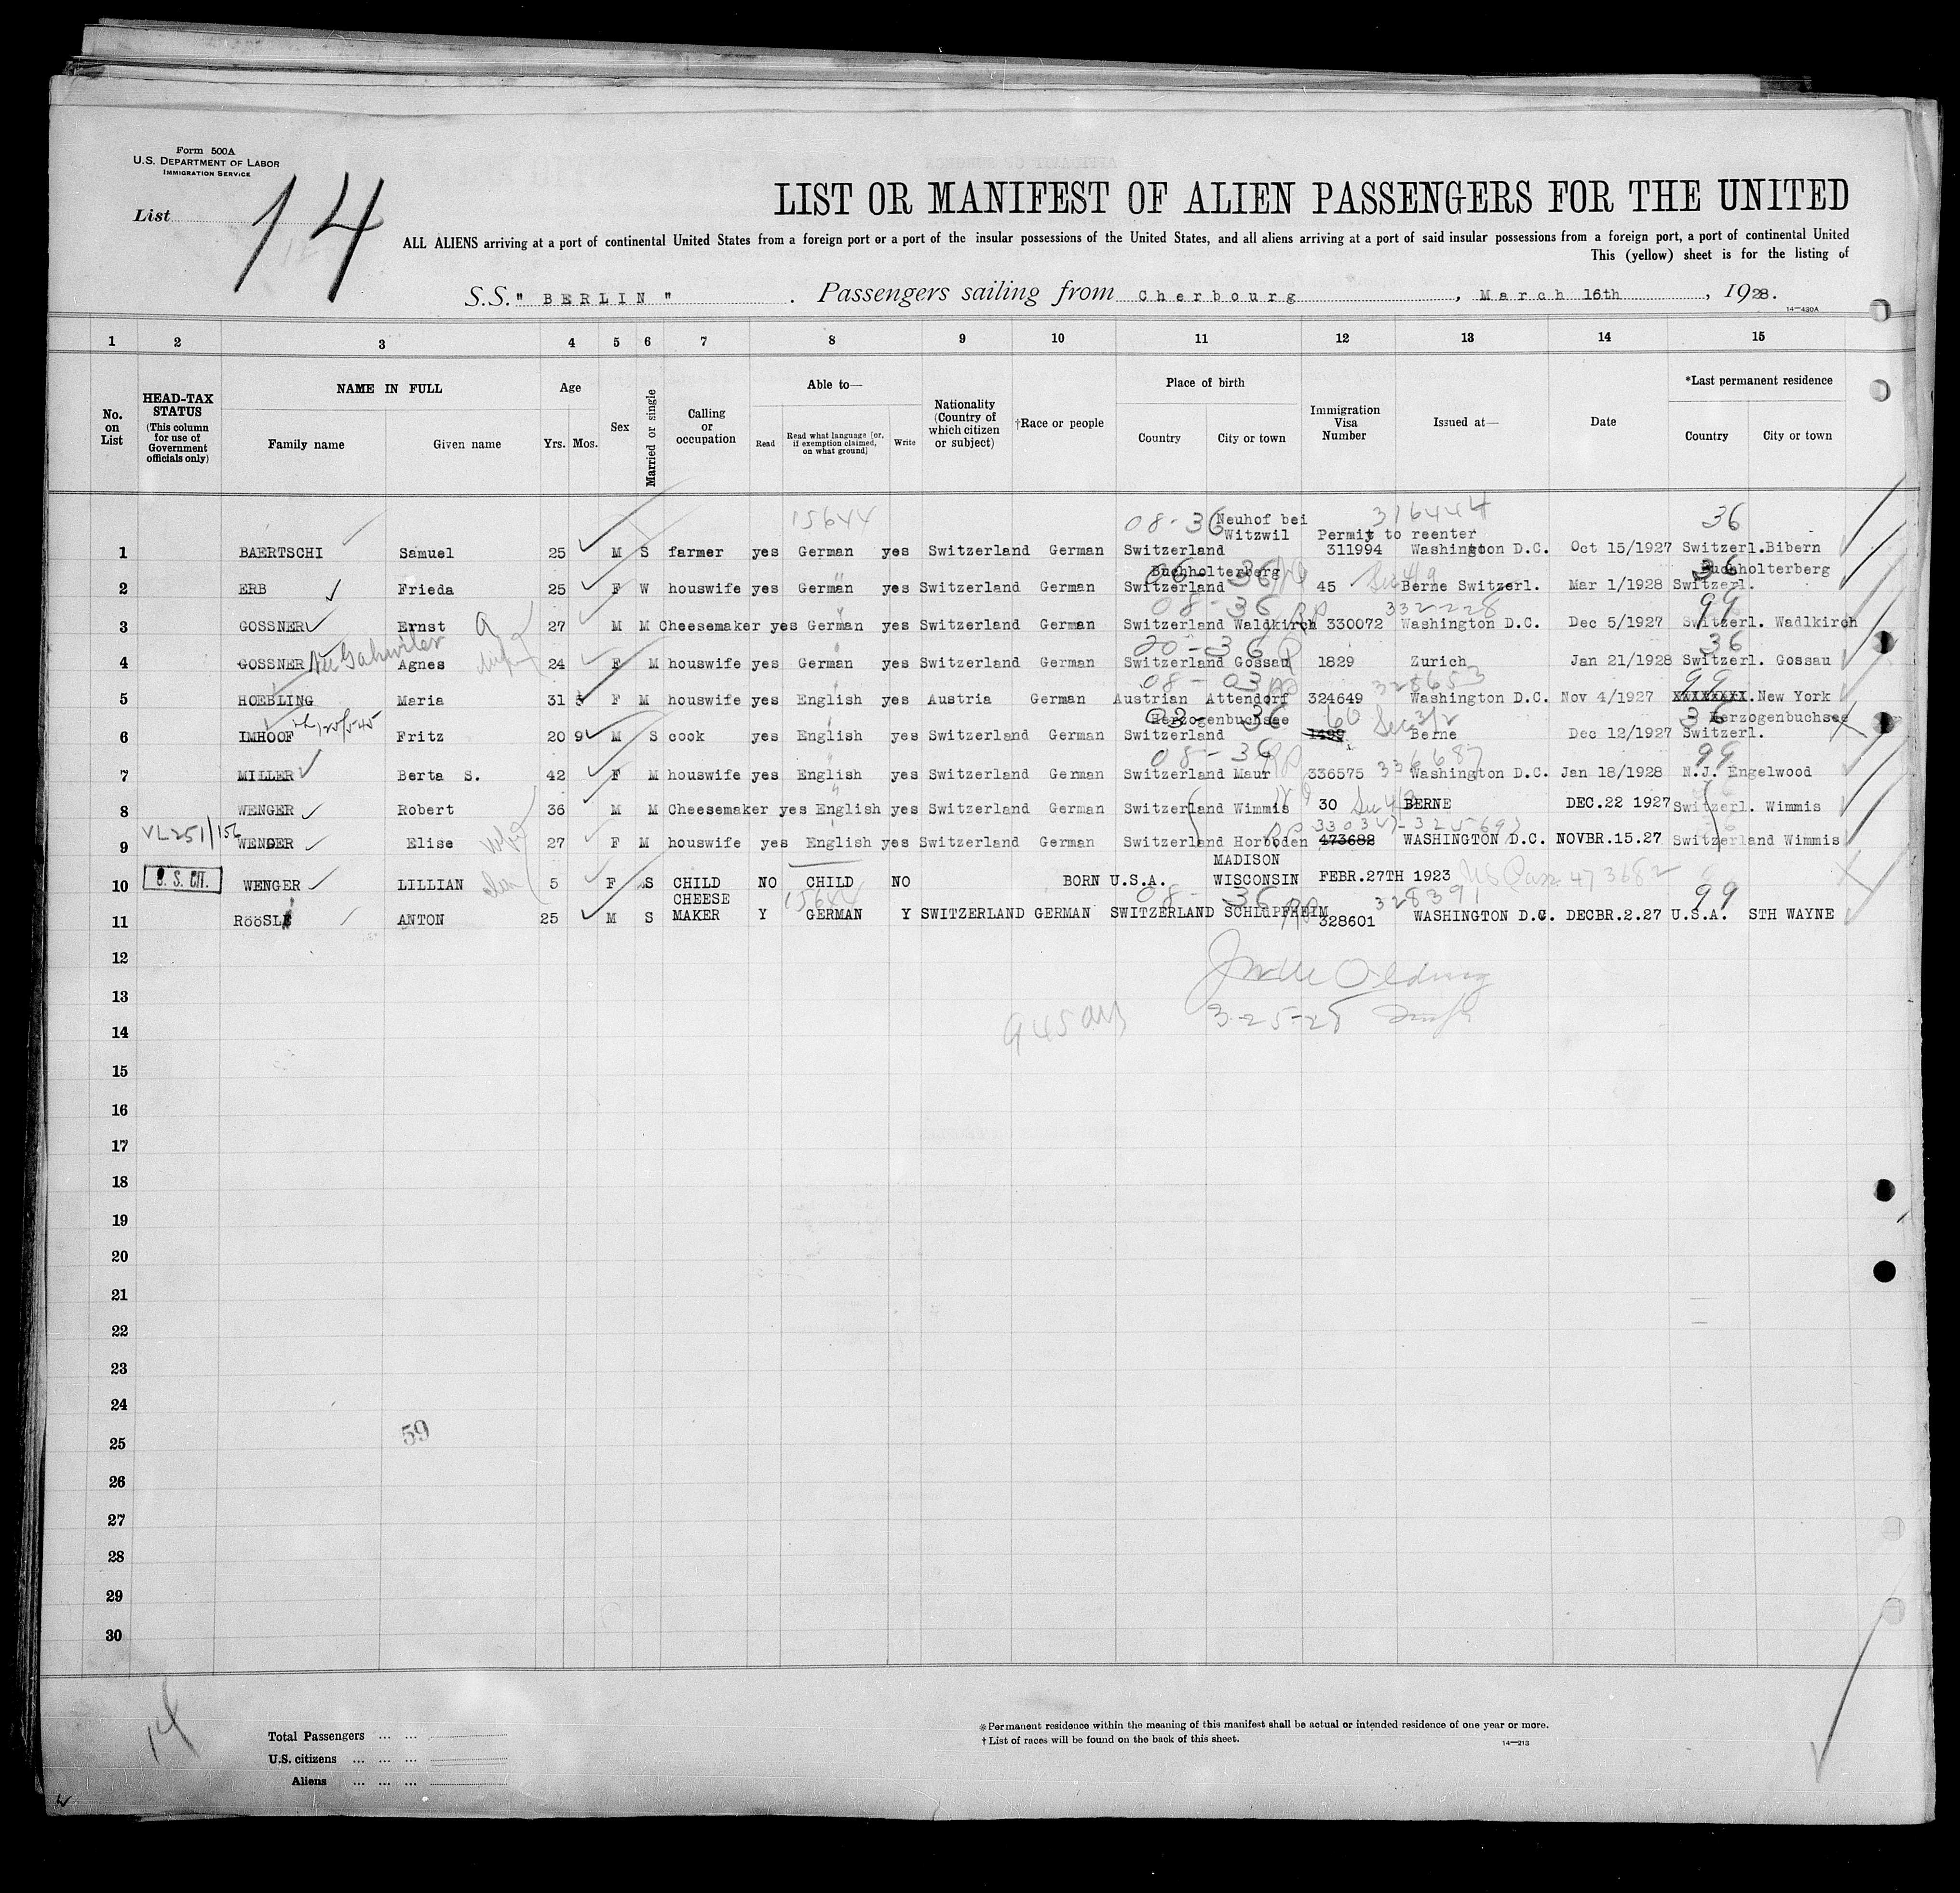 Form 500A
U.S. DEPARTMENT OF LABOR
IMMIGRATION SERVICE
List 14
LIST OR MANIFEST OF ALIEN PASSENGERS FOR THE UNITED
ALL ALIENS arriving at a port of continental United States from a foreign port or a port of the insular possessions of the United States, and all aliens arriving at a port of said insular possessions from a foreign port, a port of continental United
This (yellow) sheet is for the listing of
S.S. " BERLIN " . Passengers sailing from Cherbourg , March 16th , 1928.
14—430A
1 2 3 4 5 6 7 8 9 10 11 12 13 14 15
No. on List
HEAD-TAX STATUS (This column for use of Government officials only)
NAME IN FULL
Family name Given name
Age
Yrs. Mos.
Sex
Married or single
Calling or occupation
Able to—
Read Read what language [or, if exemption claimed, on what ground] Write
Nationality (Country of which citizen or subject)
†Race or people
Place of birth
Country City or town
Immigration Visa Number
Issued at—
Date
*Last permanent residence
Country City or town
15644 08-36 Neuhof bei 316444 36
Witzwil Permit to reenter
1 BAERTSCHI Samuel 25 M S farmer yes German yes Switzerland German Switzerland 311994 Washington D.C. Oct 15/1927 Switzerl. Bibern
Buchholterberg 36 36 Buchholterberg
2 ERB Frieda 25 F W houswife yes German yes Switzerland German Switzerland 45 Berne Switzerl. Mar 1/1928 Switzerl.
08-36 332228 99
3 GOSSNER Ernst 27 M M Cheesemaker yes German yes Switzerland German Switzerland Waldkirch 330072 Washington D.C. Dec 5/1927 Switzerl. Wadlkirch
20-36 36
4 GOSSNER Agnes 24 F M houswife yes German yes Switzerland German Switzerland Gossau 1829 Zurich Jan 21/1928 Switzerl. Gossau
08-03 328653 99
5 HOEBLING Maria 31 F M houswife yes English yes Austria German Austrian Attendorf 324649 Washington D.C. Nov 4/1927 XXXXXXXX. New York
Herzogenbuchsee 36 60 36 Herzogenbuchsee
6 IMHOOF Fritz 20 9 M S cook yes English yes Switzerland German Switzerland 1499 Berne Dec 12/1927 Switzerl.
08-36 336687 99
7 MILLER Berta S. 42 F M houswife yes English yes Switzerland German Switzerland Maur 336575 Washington D.C. Jan 18/1928 N.J. Engelwood
8 WENGER Robert 36 M M Cheesemaker yes English yes Switzerland German Switzerland Wimmis 30 BERNE DEC.22 1927 Switzerl. Wimmis
VL251/156
9 WENGER Elise 27 F M houswife yes English yes Switzerland German Switzerland Horboden 473682 WASHINGTON D.C. NOVBR.15.27 Switzerland Wimmis
MADISON
U. S. CIT.
10 WENGER LILLIAN 5 F S CHILD NO CHILD NO BORN U.S.A. WISCONSIN FEBR.27TH 1923 US Pass 473682
CHEESE 15644 08-36 328391 99
11 RööSLE ANTON 25 M S MAKER Y GERMAN Y SWITZERLAND GERMAN SWITZERLAND SCHLüPFHEIM 328601 WASHINGTON D.C. DECBR.2.27 U.S.A. STH WAYNE
12
13
3-25-28
14
15
16
17
18
19
20
21
22
23
24
59
25
26
27
28
29
30
14
Total Passengers ... ...
U.S. citizens ... ... ...
Aliens ... ... ...
*Permanent residence within the meaning of this manifest shall be actual or intended residence of one year or more.
†List of races will be found on the back of this sheet.
14—213